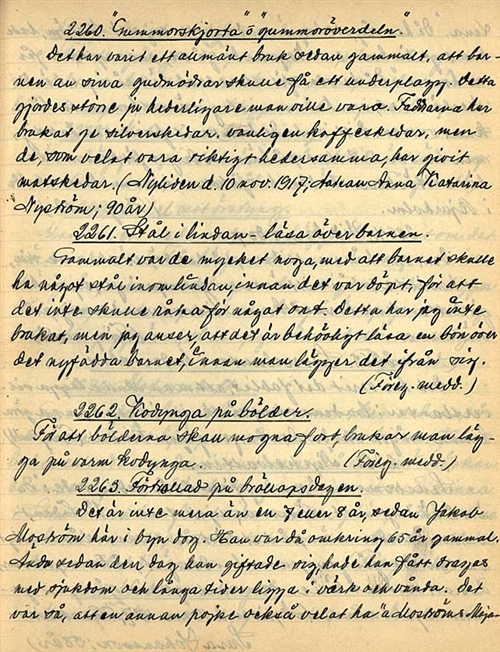 2260. "Gummorskjorta" o "gummoröverdeln".
Det har varit ett allmänt bruk sedan gammalt, att bar-
nen av sina gudmödrar skulle få ett underplagg. Detta
gjordes större ju hederligare man ville vara. Faddrarna har
brukat ge silverskedar, vanligen kaffeskedar, men
de, som velat vara riktigt hedersamma, har givit
matskedar. (Nyliden d. 10 nov. 1917; Anna Katarina
Nyström; 90 år)
2261. Stål i lindan - läsa över barnen.
Gammalt var de mycket noga, med att barnet skulle
ha något stål inom lindan, innan det var döpt, för att
det inte skulle råka för något ont. Detta har jag inte
brukat, men jag anser, att det är behövligt läsa en bön över
det nyfödda barnet, innan man lägger det ifrån sig.
(Föreg. medd.)
2262. Kodynga på bölder.
För att bölderna skall mogna fort brukar man läg-
ga på varm kodynga. (Föreg. medd.)
2263. Förtrollad på bröllopsdagen.
Det är inte mera än en 7 eller 8 år, sedan Jakob
Moström här i byn dog. Han var då omkring 65 år gammal.
Ända sedan den dag han giftade sig, hade han fått dragas
med sjukdom och långa tider ligga i värk och vånda. Det
var så, att en annan pojke också velat ha "a Moströms Maja-